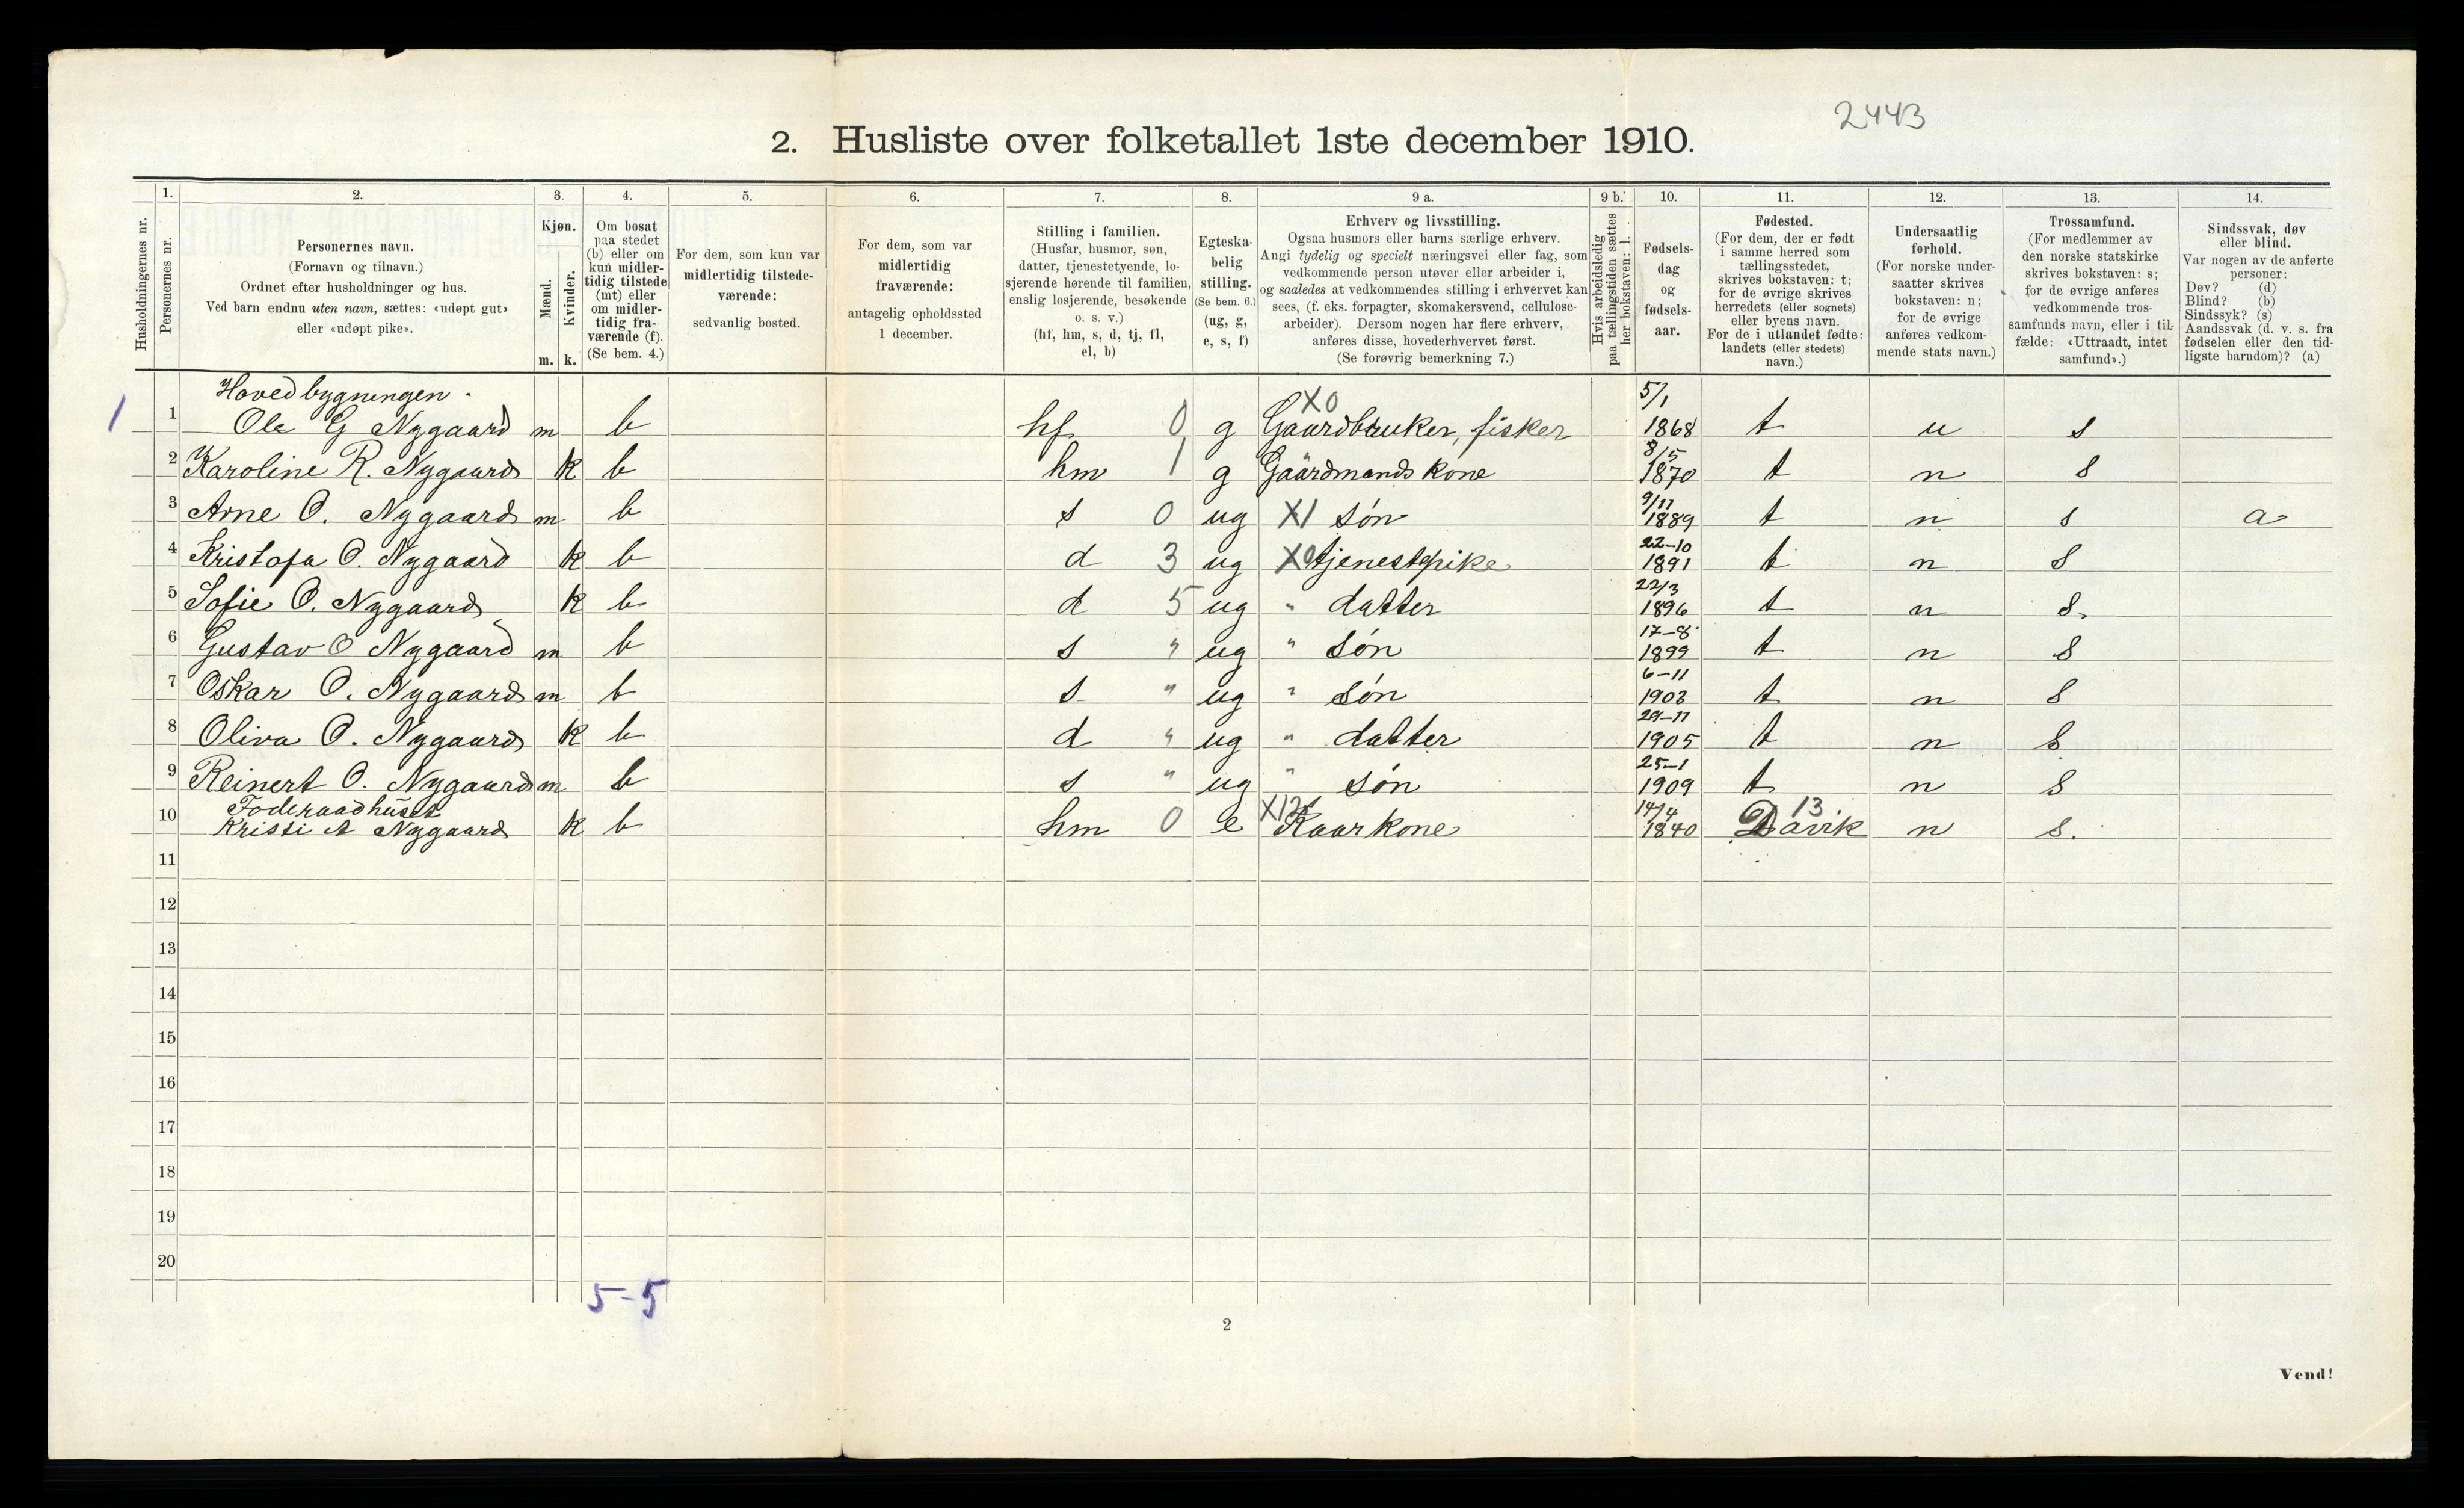 2443
2. Husliste over folketallet 1ste december 1910.
Husholdningernes nr.
1. Personernes nr.
2. Personernes navn. (Fornavn og tilnavn.) Ordnet efter husholdninger og hus. Ved barn endnu uten navn, sættes: «udøpt gut» eller «udøpt pike».
3. Kjøn. Mænd. m. Kvinder. k.
4. Om bosat paa stedet (b) eller om kun midlertidig tilstede (mt) eller om midlertidig fraværende (f). (Se bem. 4.)
5. For dem, som kun var midlertidig tilstedeværende: sedvanlig bosted.
6. For dem, som var midlertidig fraværende: antagelig opholdssted 1 december.
7. Stilling i familien. (Husfar, husmor, søn, datter, tjenestetyende, losjerende hørende til familien, enslig losjerende, besøkende o. s. v.) (hf, hm, s, d, tj, fl, el, b)
8. Egteskabelig stilling. (Se bem. 6.) (ug, g, e, s, f)
9 a. Erhverv og livsstilling. Ogsaa husmors eller barns særlige erhverv. Angi tydelig og specielt næringsvei eller fag, som vedkommende person utøver eller arbeider i, og saaledes at vedkommendes stilling i erhvervet kan sees, (f. eks. forpagter, skomakersvend, cellulosearbeider). Dersom nogen har flere erhverv, anføres disse, hovederhvervet først. (Se forøvrig bemerkning 7.)
9 b. Hvis arbeidsledig paa tællingstiden sættes her bokstaven: l.
10. Fødselsdag og fødselsaar.
11. Fødested. (For dem, der er født i samme herred som tællingsstedet, skrives bokstaven: t; for de øvrige skrives herredets (eller sognets) eller byens navn. For de i utlandet fødte: landets (eller stedets) navn.)
12. Undersaatlig forhold. (For norske undersaatter skrives bokstaven: n; for de øvrige anføres vedkommende stats navn.)
13. Trossamfund. (For medlemmer av den norske statskirke skrives bokstaven: s; for de øvrige anføres vedkommende trossamfunds navn, eller i tilfælde: «Uttraadt, intet samfund».)
14. Sindssvak, døv eller blind. Var nogen av de anførte personer: Døv? (d) Blind? (b) Sindssyk? (s) Aandssvak (d. v. s. fra fødselen eller den tidligste barndom)? (a)
Hovedbygningen.
1 1 Ole G Nygaard m b hf 0 g X0 Gaardbruker, fisker 5/1 1868 t n s
2 Karoline R. Nygaard k b hm 1 g Gaardmands kone 8/5 1870 t n s
3 Arne O. Nygaard m b s 0 ug X1 søn 9/11 1889 t n s a
4 Kristofa O. Nygaard k b d 3 ug X0 tjenestepike 22-10 1891 t n s
5 Sofie O. Nygaard k b d 5 ug " datter 22/3 1896 t n s.
6 Gustav O Nygaard m b s " ug " søn 17-8 1899 t n s
7 Oskar O. Nygaard m b s " ug " søn 6-11 1903 t n s
8 Oliva O. Nygaard k b d " ug " datter 29-11 1905 t n s
9 Reinert O. Nygaard m b s " ug " søn 25-1 1909 t n s
Føderaadhuset
10 Kristi A Nygaard k b hm 0 e X12 Kaarkone 14/4 1840 13 Davik n s.
11
12
13
14
15
16
17
18
19
20
5-5
2
Vend!